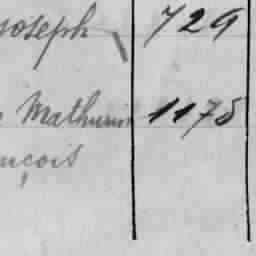 Joseph 729
Mathurin 1175
nçois